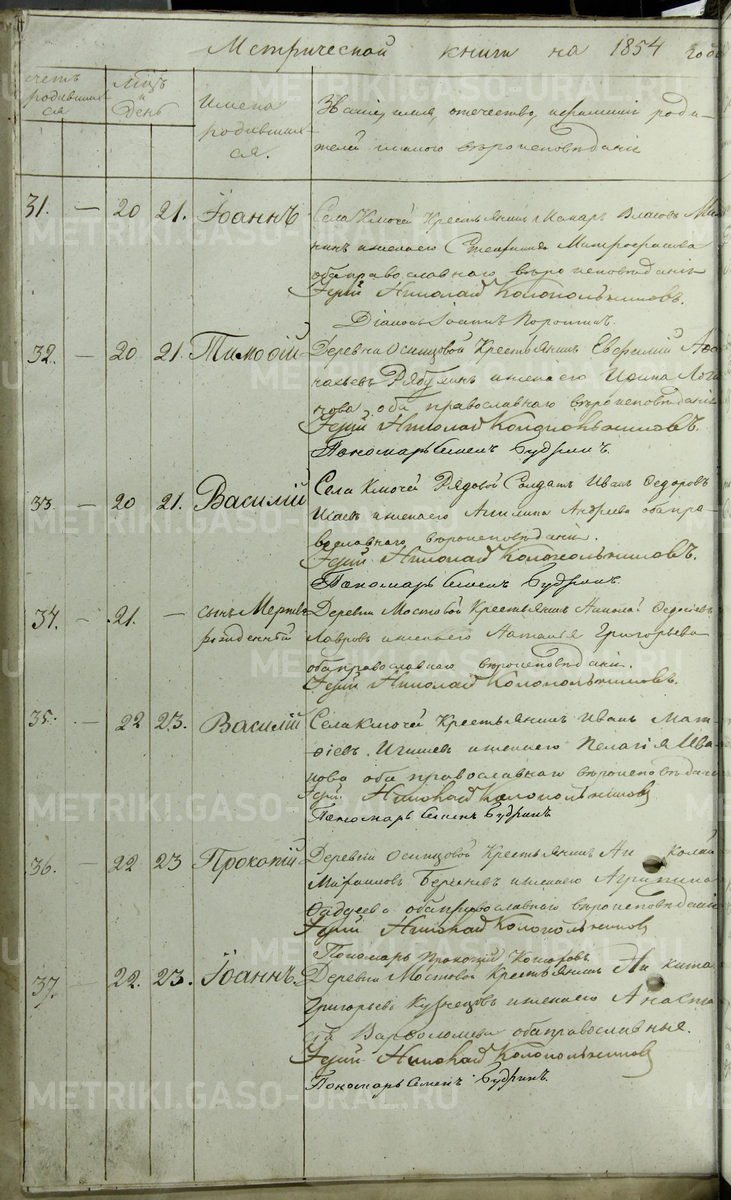 Метрической книги на 1854 годъ
счетъ родившихся
Мцъ и День
Имена родившихся.
Званіе, имя, отечество, и фамилія роди-
телей и какого вѣроисповѣданія
31. — 20 21. Іоаннъ
Села Ключей Крестьянинъ Макаръ Власовъ
и жена его Митрофанова
оба православнаго вѣроисповѣданія
Іерей Николай Колокольниковъ.
Діаконъ Іоаннъ Коровинъ.
32. — 20 21. Тимоѳій
Деревни Осинцовой Крестьянинъ Евфимій Аѳа-
насьевъ Рябухинъ и жена его Логи-
нова оба православнаго вѣроисповѣданія
Іерей Николай Колокольниковъ.
Пономарь Семенъ Будринъ.
33. — 20 21. Василій
Села Ключей Рядовой Солдатъ Иванъ Ѳедоровъ
и жена его Андреева оба пра-
вославнаго вѣроисповѣданія.
Іерей Николай Колокольниковъ.
Пономарь Семенъ Будринъ.
34. — 21. — сынъ Мертво
рожденный
Деревни Мостовой Крестьянинъ Никола Ѳедосѣевъ
Лавровъ и жена его Наталья Григорьева
оба православнаго вѣроисповѣданія.
Іерей Николай Колокольниковъ.
35. — 22 23. Василій
Села Ключей Крестьянинъ Иванъ Мат-
ѳіевъ и жена его Пелагія Ива
нова оба православнаго вѣроисповѣданія
Іерей Николай Колокольниковъ
Пономарь Семенъ Будринъ
36. — 22 23 Прокопій
Деревни Осинцовой Крестьянинъ Николай
и жена его Агрипина
Ѳадѣева оба православнаго вѣроисповѣданія
Іерей Николай Колокольниковъ
Пономарь Прокопій Комаровъ
37. — 22. 23. Іоаннъ
Деревни Мостовой Крестьянинъ Никита
Григорьевъ Кузнецовъ и жена его Анаста
сія Варѳоломеева оба православные.
Іерей Николай Колокольниковъ
Пономарь Семенъ Будринъ.
METRIKI.GASO-URAL.RU